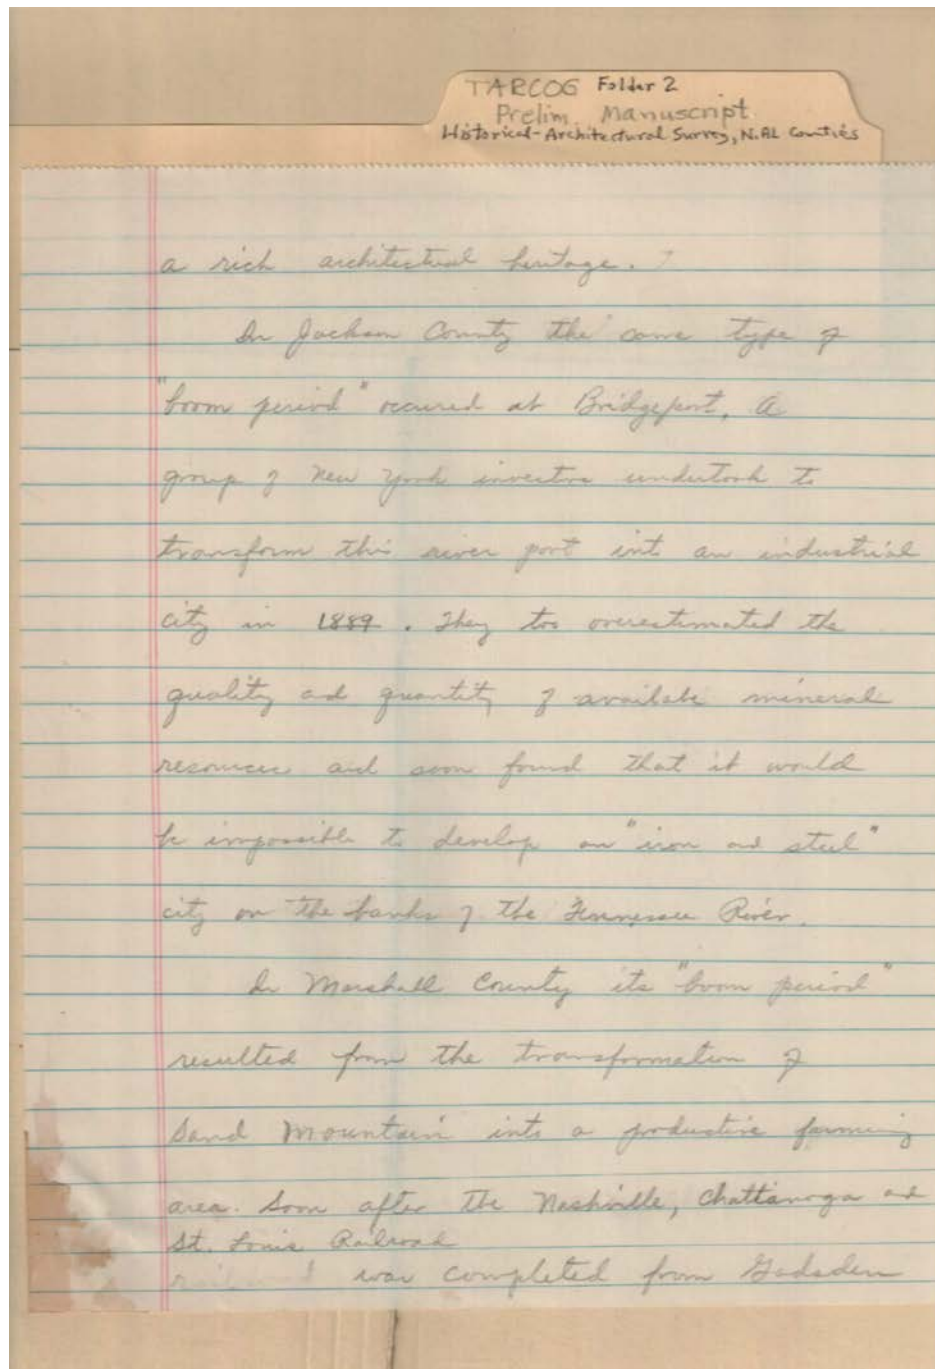 TARCOG Folder 2
Prelim. Manuscript
Historical-Architectural Survey, N.AL Counties
a rich architectual heritage.
In Jackson County the same type of
"boom period" occured at Bridgeport. A
group of New York investors undertook to
transform this river port into an industrial
city in 1889. They too overestimated the
quality and quantity of available mineral
resources and soon found that it would
be impossible to develop an "iron and steel"
city on the banks of the Tennessee River.
In Marshall County its "boom period"
resulted from the transformation of
Sand Mountain into a productive farming
area. Soon after the Nashville, Chattanooga and
St. Louis Railroad
was completed from Gadsden